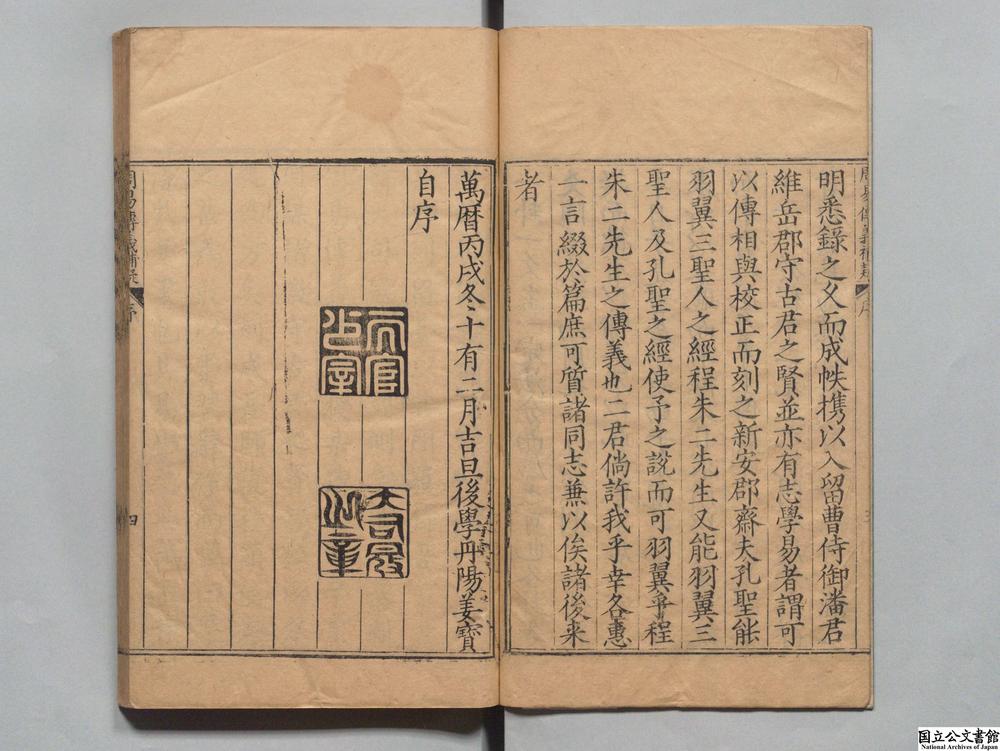 明悉錄之久而成帙携以入留曹侍御潘君
維岳郡守古君之賢並亦有志學易者謂可
以傳相與校正而刻之新安郡齋夫孔聖能
羽翼三聖人之經程朱二先生又能羽翼三
聖人及孔聖之經使予之說而可羽翼乎程
朱二先生之傳義也二君倘許我乎幸各惠
一言綴於篇庶可質諸同志兼以俟諸後来
者
萬曆丙戌冬十有二月吉旦後學丹陽姜寶
自序
周易傳義補疑
序
四
国立公文書館
National Archives of Japan